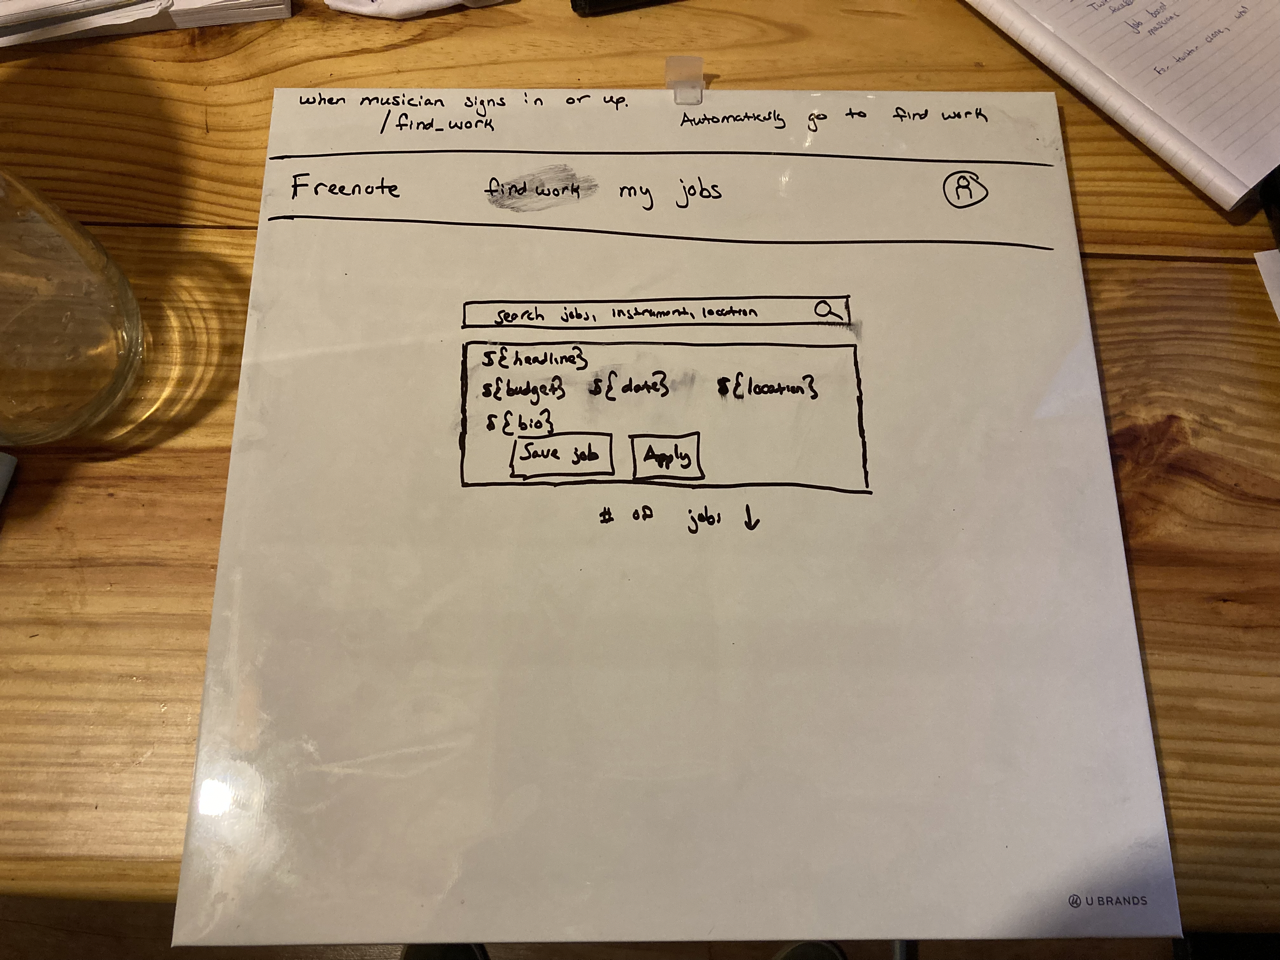 when musician signs in or up.
/find_work
Automatically go to find work
Freenote find work my jobs
search jobs, instrument, location
${headline}
${budget} ${date} ${location}
${bio}
Save job Apply
# of jobs ↓
U BRANDS
job board
musicians